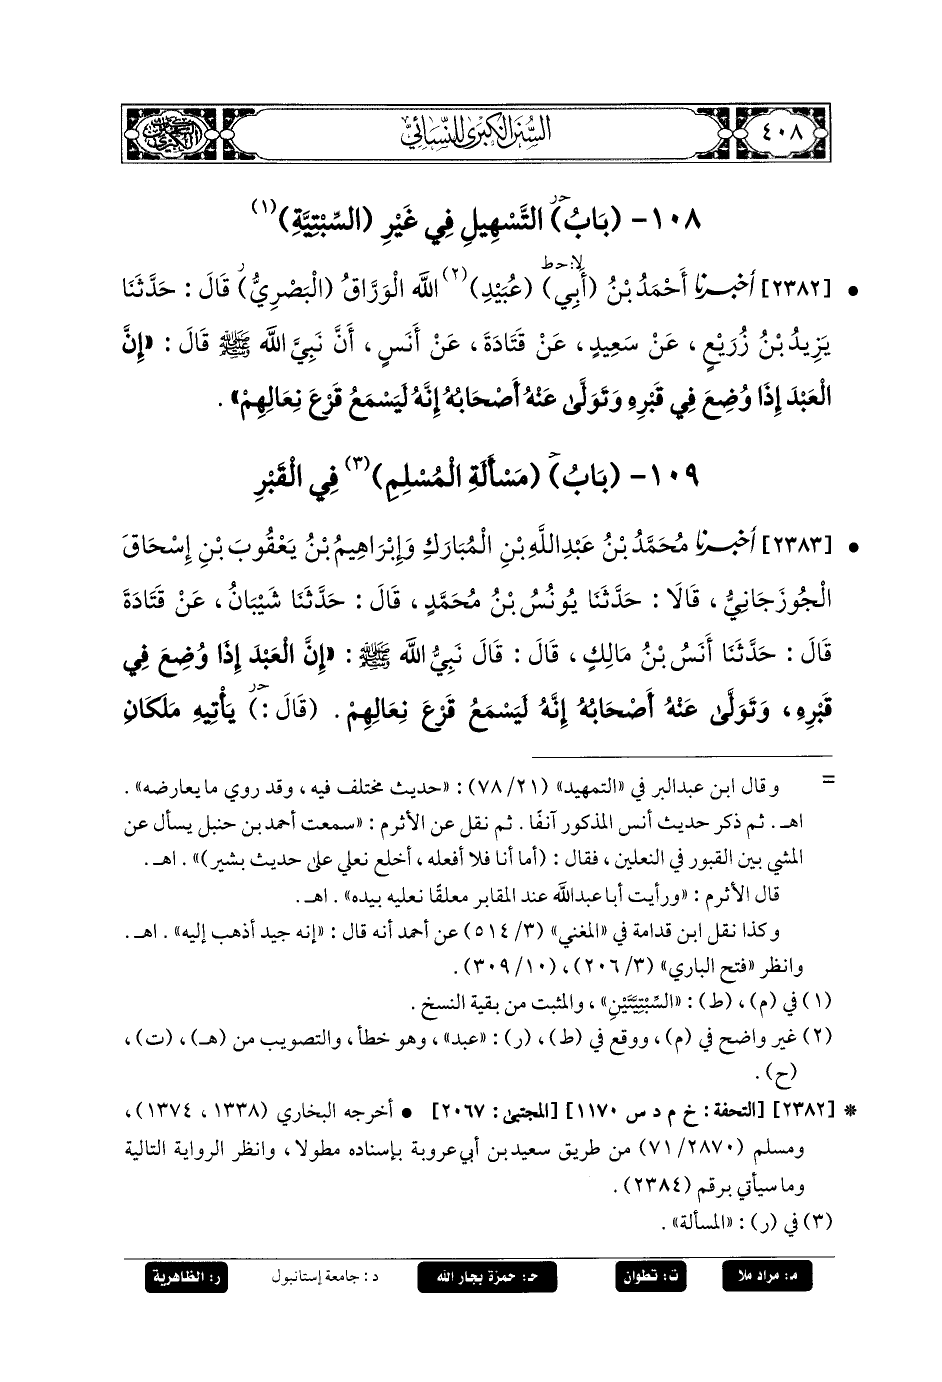 ٤٠٨
السنن الكبرى للنسائي
١٠٨- (بَابُ) التَّسْهِيلِ فِي غَيْرِ (السِّبْتِيَّةِ)(١)
حـ ر
لا: حـ ط
• [٢٣٨٢] أخبرنا أَحْمَدُ بْنُ (أَبِي) (عُبَيْدِ)(٢) اللَّه الْوَرَّاقُ (الْبَصْرِيُّ) قَالَ : حَدَّثَنَا
ر
يَزِيدُ بْنُ زُرَيْعٍ ، عَنْ سَعِيدٍ ، عَنْ قَتَادَةَ ، عَنْ أَنَسٍ ، أَنَّ نَبِيَّ اللَّه ﷺ قَالَ : «إِنَّ
الْعَبْدَ إِذَا وُضِعَ فِي قَبْرِهِ وَتَوَلَّىٰ عَنْهُ أَصْحَابُهُ إِنَّهُ لَيَسْمَعُ قَرْعَ نِعَالِهِمْ» .
١٠٩- (بَابُ) (مَسْأَلَةِ الْمُسْلِمِ)(٣) فِي الْقَبْرِ
حـ
• [٢٣٨٣] أخبرنا مُحَمَّدُ بْنُ عَبْدِاللَّهِ بْنِ الْمُبَارَكِ وَإِبْرَاهِيمُ بْنُ يَعْقُوبَ بْنِ إِسْحَاقَ
الْجُوزَجَانِيُّ ، قَالَا : حَدَّثَنَا يُونُسُ بْنُ مُحَمَّدٍ ، قَالَ : حَدَّثَنَا شَيْبَانُ ، عَنْ قَتَادَةَ
قَالَ : حَدَّثَنَا أَنَسُ بْنُ مَالِكٍ ، قَالَ : قَالَ نَبِيُّ اللَّه ﷺ : «إِنَّ الْعَبْدَ إِذَا وُضِعَ فِي
قَبْرِهِ ، وَتَوَلَّىٰ عَنْهُ أَصْحَابُهُ إِنَّهُ لَيَسْمَعُ قَرْعَ نِعَالِهِمْ . (قَالَ :) يَأْتِيهِ مَلَكَانِ
حـ ر
= وقال ابن عبدالبر في «التمهيد» (٢١/ ٧٨) : «حديث مختلف فيه ، وقد روي ما يعارضه» .
اهـ . ثم ذكر حديث أنس المذكور آنفًا . ثم نقل عن الأثرم : «سمعت أحمد بن حنبل يسأل عن
المشي بين القبور في النعلين ، فقال : (أما أنا فلا أفعله ، أخلع نعلي على حديث بشير)» . اهـ .
قال الأثرم : «ورأيت أبا عبدالله عند المقابر معلقًا نعليه بيده» . اهـ .
وكذا نقل ابن قدامة في «المغني» (٣/ ٥١٤) عن أحمد أنه قال : «إنه جيد أذهب إليه» . اهـ .
وانظر «فتح الباري» (٣/ ٢٠٦) ، (١٠/ ٣٠٩) .
(١) في (م) ، (ط) : «السِّبْتِيَّتَيْنِ» ، والمثبت من بقية النسخ .
(٢) غير واضح في (م) ، ووقع في (ط) ، (ر) : «عبد» ، وهو خطأ ، والتصويب من (هـ) ، (ت) ،
(ح) .
* [٢٣٨٢] [التحفة : خ م د س ١١٧٠] [المجتبى : ٢٠٦٧] • أخرجه البخاري (١٣٣٨ ، ١٣٧٤) ،
ومسلم (٢٨٧٠/ ٧١) من طريق سعيد بن أبي عروبة بإسناده مطولا ، وانظر الرواية التالية
وما سيأتي برقم (٢٣٨٤) .
(٣) في (ر) : «المسألة» .
مـ: مراد ملا ت: تطوان حـ: حمزة بجار الله د: جامعة إستانبول ر: الظاهرية